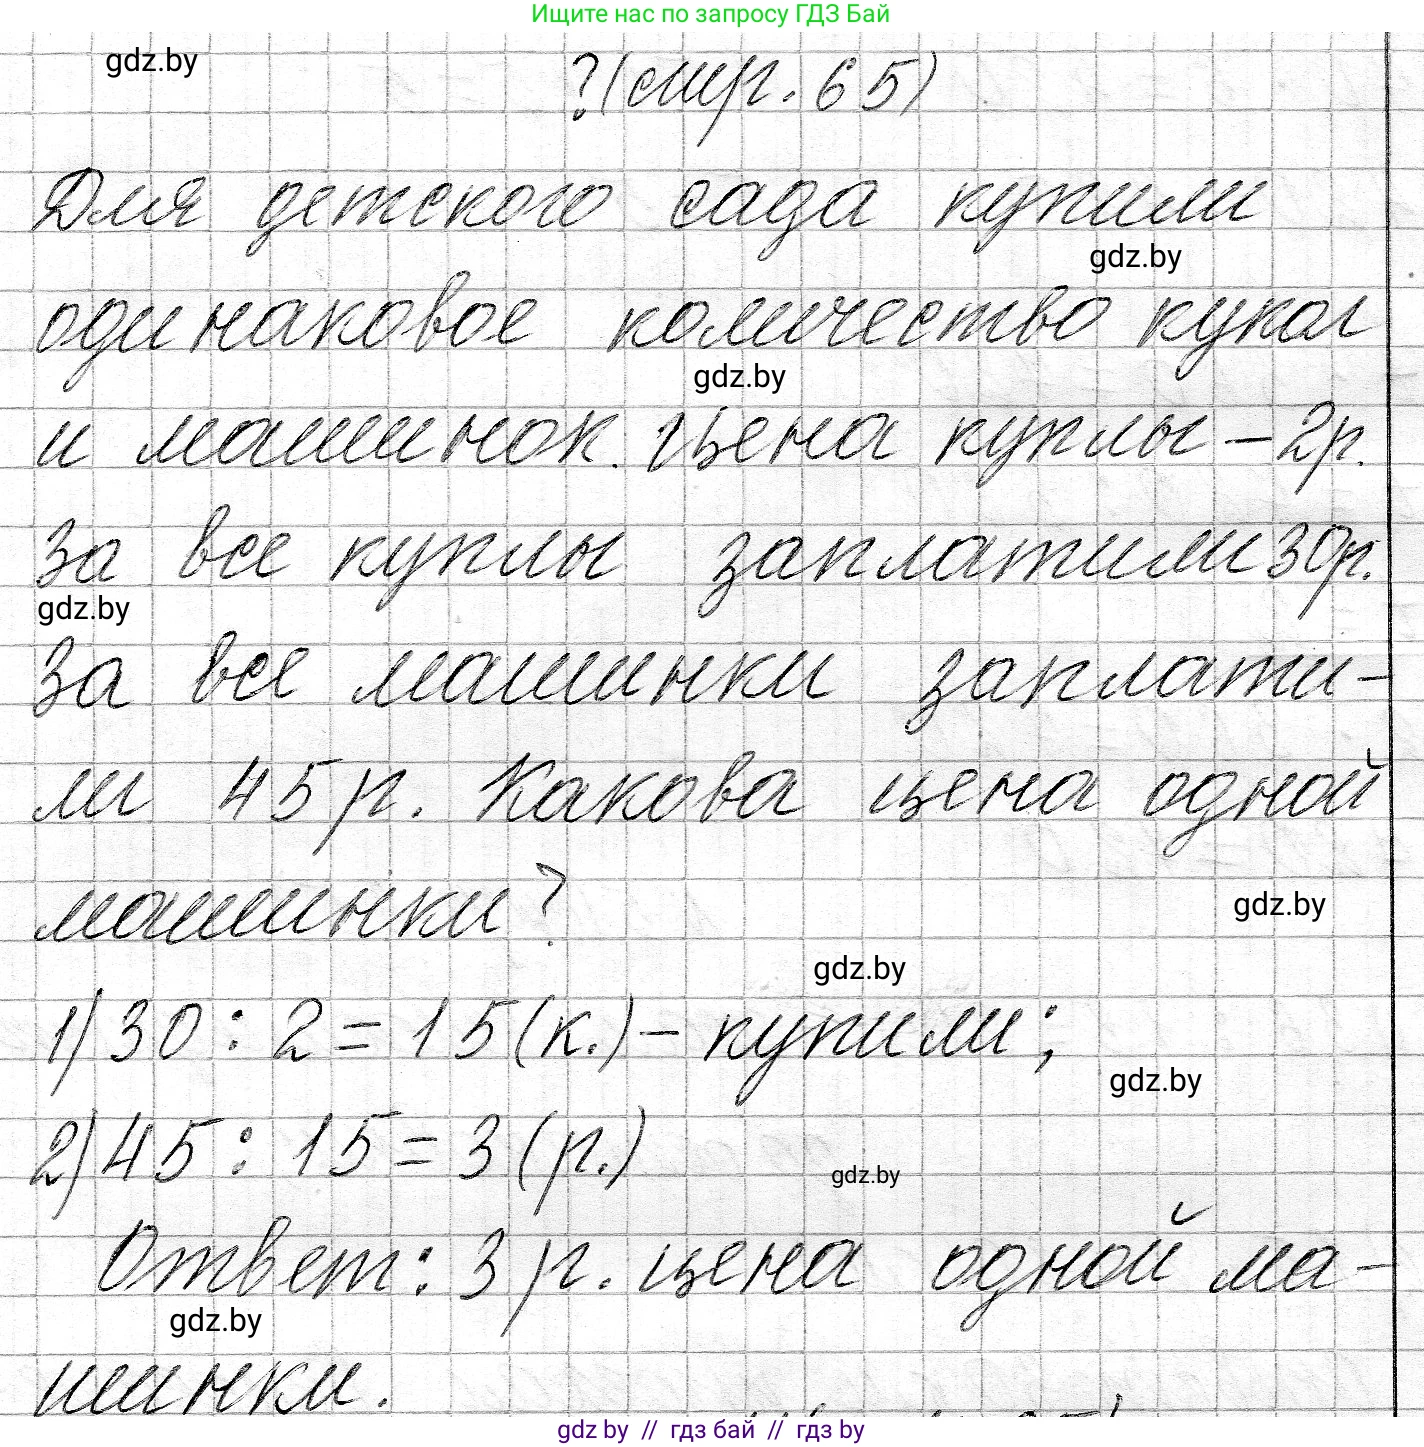 Ищите нас по запросу ГДЗ Бай
gdz.by
?(стр. 65)
Для детского сада купили
gdz.by
одинаковое количество кукол
gdz.by
и машинок. Цена куклы – 2р.
За все куклы заплатили 30р.
gdz.by
За все машинки заплати-
ли 45 р. Какова цена одной
машинки?
gdz.by
gdz.by
1) 30 : 2 = 15 (к.) – купили;
gdz.by
2) 45 : 15 = 3 (р.)
gdz.by
Ответ: 3 р. цена одной ма-
gdz.by
шинки.
gdz by // гдз бай // гдз by